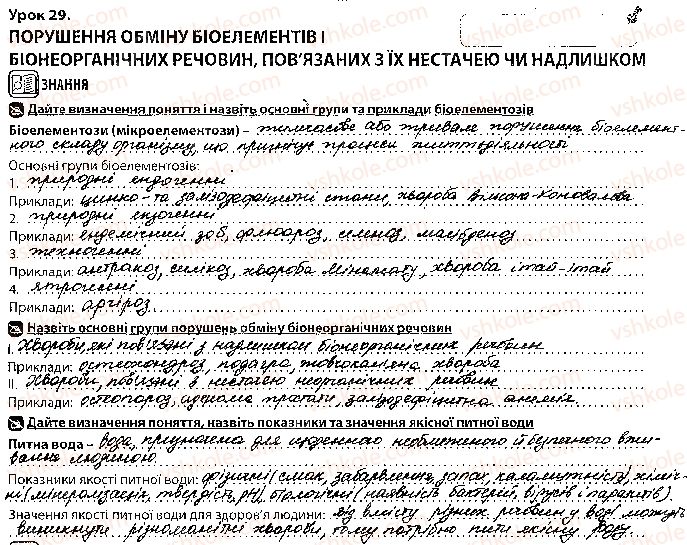 Урок 29.
ПОРУШЕННЯ ОБМІНУ БІОЕЛЕМЕНТІВ І
БІОНЕОРГАНІЧНИХ РЕЧОВИН, ПОВ'ЯЗАНИХ З ЇХ НЕСТАЧЕЮ ЧИ НАДЛИШКОМ
ЗНАННЯ
Дайте визначення поняття і назвіть основні групи та приклади біоелементозів
Біоелементози (мікроелементози) – тимчасове або тривале порушення біоелемент-
ного складу організму, що пригнічує процеси життєдіяльності
Основні групи біоелементозів:
1. природні ендогенні
Приклади: цинко- та залізодефіцитні стани, хвороба Вільсона-Коновалова
2. природні екзогенні
Приклади: ендемічний зоб, флюороз, селеноз, молібденоз
3. техногенні
Приклади: антракоз, силікоз, хвороба Мінамату, хвороба ітай-ітай
4. ятрогенні
Приклади: аргіроз
Назвіть основні групи порушень обміну біонеорганічних речовин
I. Хвороби, які пов'язані з надлишком біонеорганічних речовин
Приклади: остеохондроз, подагра, жовчокам'яна хвороба
II. Хвороби, пов'язані з нестачею неорганічних речовин
Приклади: остеопороз, аденома простати, залізодефіцитна анемія
Дайте визначення поняття, назвіть показники та значення якісної питної води
Питна вода – вода, призначена для щоденного необмеженого й безпечного вжи-
вання людиною
Показники якості питної води: фізичні (смак, забарвлення, запах, каламутність), хіміч-
ні (мінералізація, твердість, pH), біологічні (наявність бактерій, вірусів і паразитів).
Значення якості питної води для здоров'я людини: від вмісту різних речовин у воді можуть
виникнути різноманітні хвороби, тому потрібно пити якісну воду
vshkole.com
vshkole.com
vshkole.com
vshkole.com